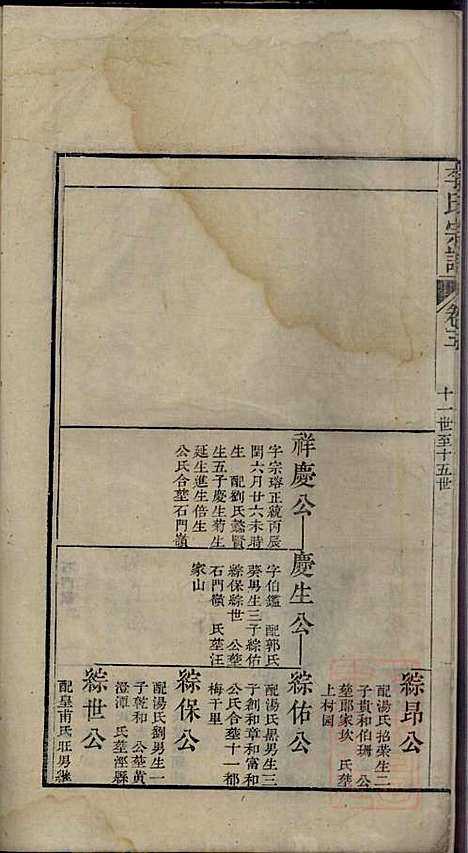 李氏宗譜
卷三
十一世至十五世
祥慶公
字宗瑢正統丙辰
閏六月廿六未時
生 配劉氏懿賢
生五子慶生菊生
延生進生倍生
公氏合塟石門嶺
慶生公
字伯鑑 配郭氏
葵男生三子綜佑
綜保綜世 公塟
石門嶺 氏塟汪
家山
綜昂公
配湯氏招榮生二
子貴和伯珊 公
塟郎家坎 氏塟
上村園
綜佑公
配湯氏黑男生三
子創和章和富和
公氏合塟十一都
梅干里
綜保公
配湯氏劉男生一
子乾和 公塟黃
澄潭 氏塟涇縣
綜世公
配皇甫氏旺男繼